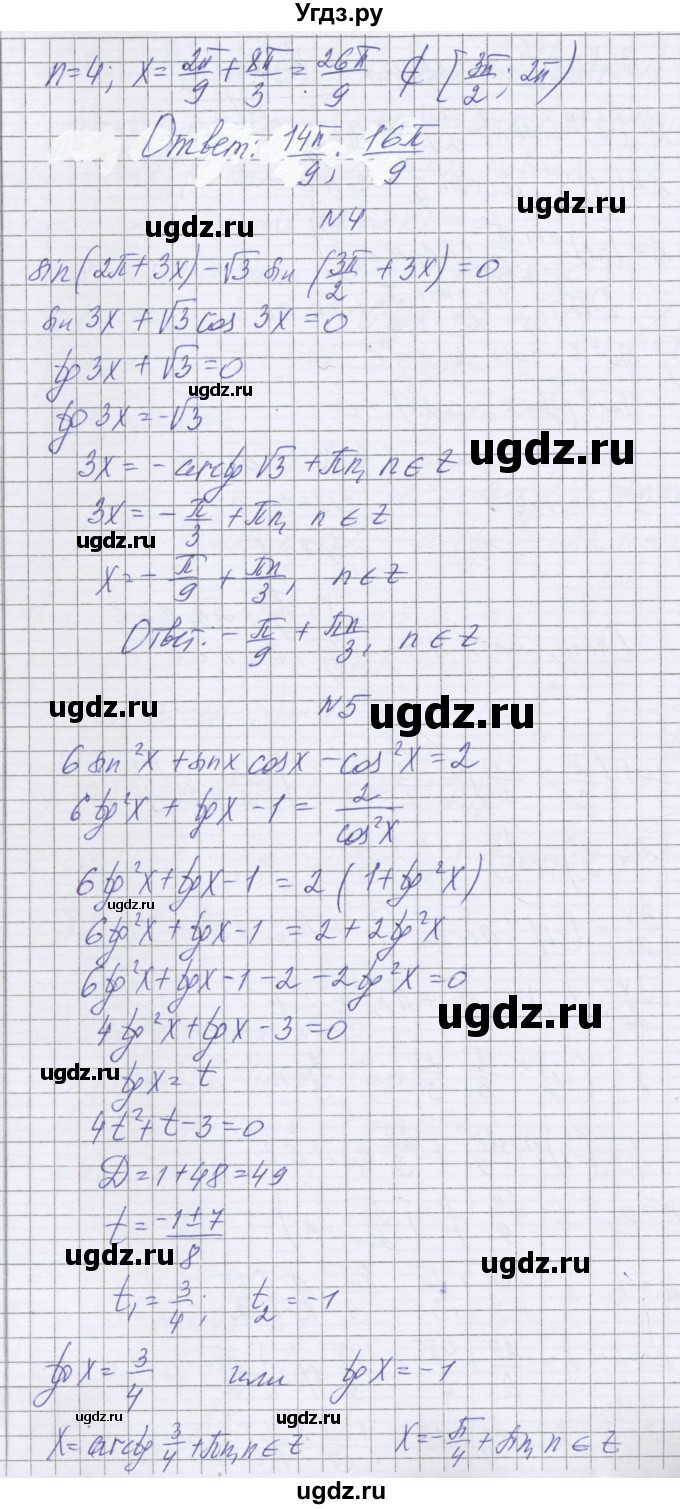 Угдз.ру
n=4; x = 2π/9 + 8π/3 = 26π/9 ∉ [3π/2; 2π)
Ответ: 14π/9; 16π/9
ugdz.ru
ugdz.ru
N4
sin(2π+3x) - √3 sin (3π/2 + 3x) = 0
sin 3x + √3 cos 3x = 0
tg 3x + √3 = 0
ugdz.ru
tg 3x = -√3
ugdz.ru
3x = - arctg √3 + πn, n ∈ Z
3x = - π/3 + πn, n ∈ Z
ugdz.ru
x = - π/9 + πn/3, n ∈ Z
Ответ: - π/9 + πn/3, n ∈ Z
ugdz.ru
N5
ugdz.ru
6 sin²x + sinx cosx - cos²x = 2
6tg²x + tgx - 1 = 2/cos²x
6tg²x + tgx - 1 = 2 (1 + tg²x)
ugdz.ru
6tg²x + tgx - 1 = 2 + 2tg²x
6tg²x + tgx - 1 - 2 - 2tg²x = 0
ugdz.ru
4tg²x + tgx - 3 = 0
ugdz.ru
tgx = t
4t² + t - 3 = 0
D = 1 + 48 = 49
t = (-1 ± 7)/8
ugdz.ru
ugdz.ru
t₁ = 3/4; t₂ = -1
tgx = 3/4 или tgx = -1
ugdz.ru
ugdz.ru
x = arctg 3/4 + πn, n ∈ Z x = - π/4 + πn, n ∈ Z
ugdz.ru